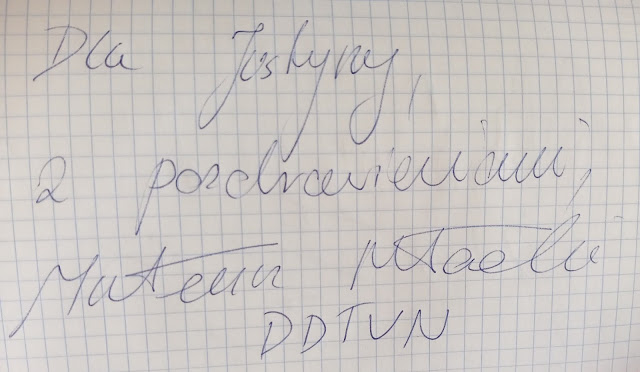 Dla Justyny,
z pozdrowieniami,
Mateusz
DDTVN